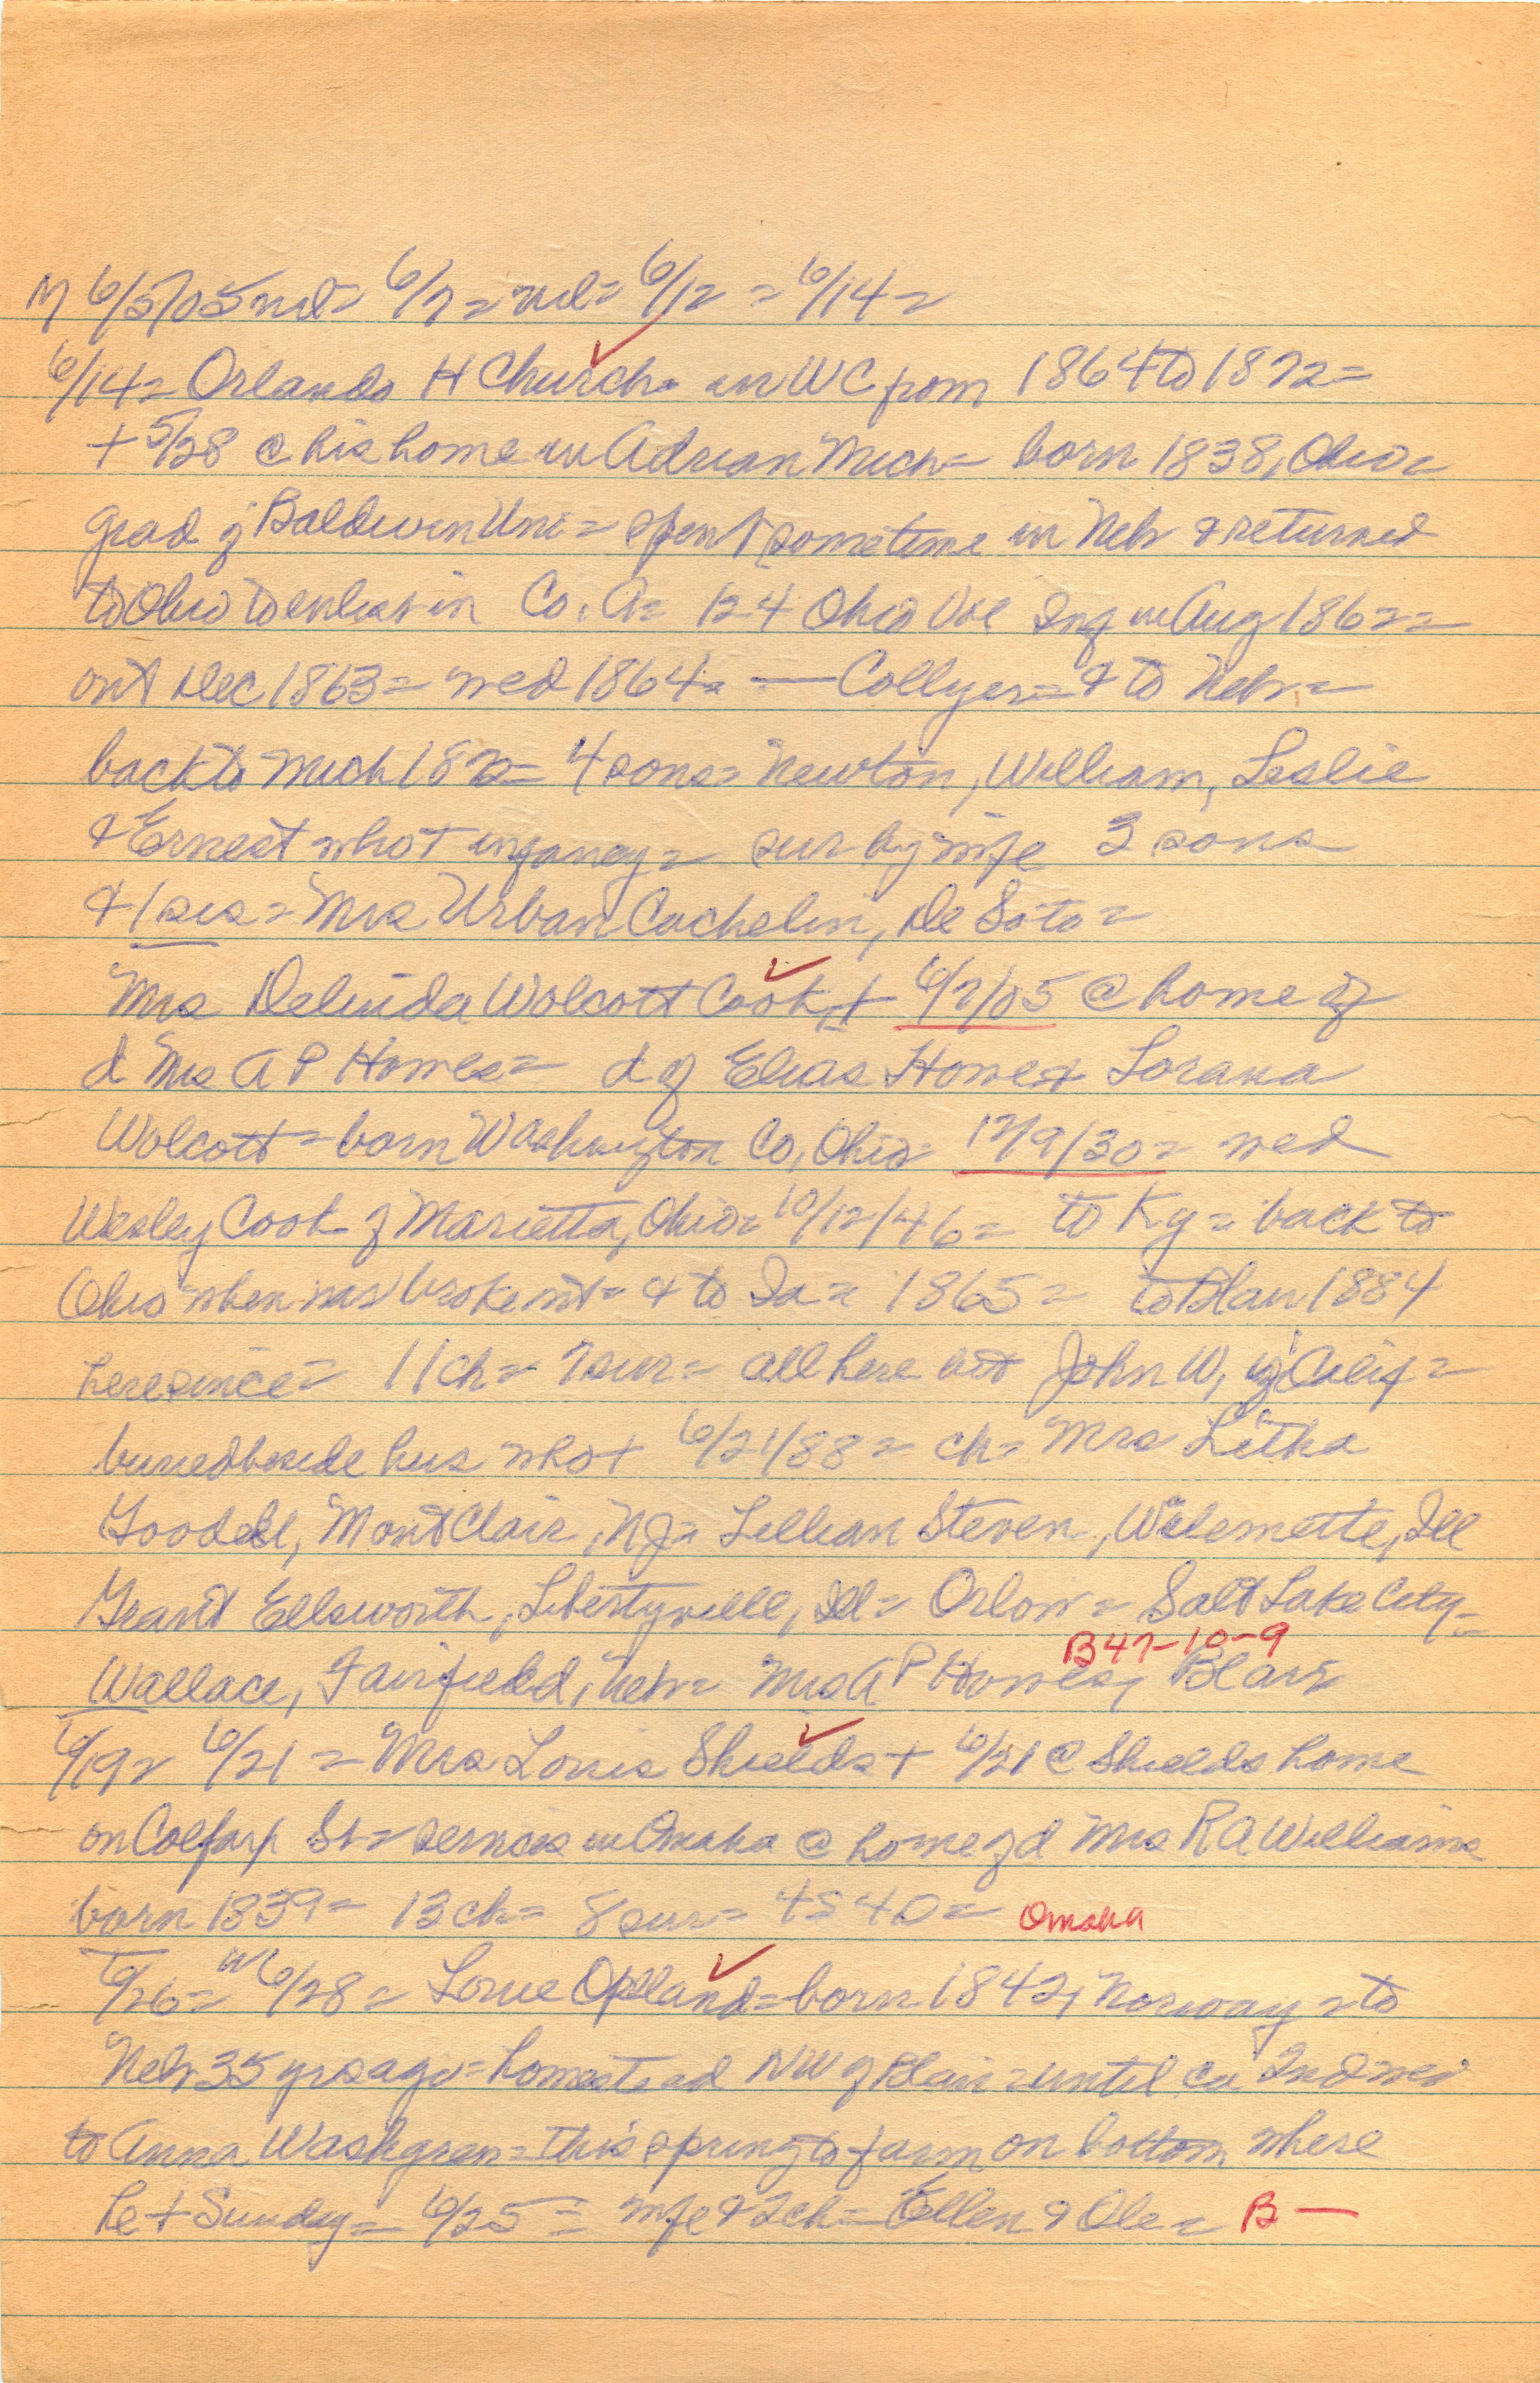 M 6/5/05 nd= 6/7= nd= 6/12 = 6/14=
6/14= Orlando H Church= in WC from 1864 to 1872=
+ 5/28 @ his home in Adrian Mich= born 1838, Ohio=
grad of Baldwin Uni= spent sometime in Nebr & returned
to Ohio to enlist in Co. A= 124 Ohio Vol Inf in Aug 1862=
out Dec 1863= wed 1864= — Collyer= & to Nebr=
back to Mich 1872= 4 sons= Newton, William, Leslie
& Ernest who + infancy= sur by wife 3 sons
& 1 sis= Mrs Urban Cachelin, De Soto=
Mrs Delinda Wolcott Cook, + 6/7/05 @ home of
d Mrs A P Howes= d of Elias Howe & Lorana
Wolcott= born Washington Co, Ohio= 12/9/30= wed
Wesley Cook of Marietta, Ohio= 10/12/46= to Ky= back to
Ohio when war broke out= & to Ia= 1865= to Blair 1884
here since= 11 ch= 7 sur= all here but John W, of Calif=
buried beside hus who + 6/21/88= ch= Mrs Letha
Goodell, MontClair, NJ= Lillian Steven, Wilemette, Ill
Grant Ellsworth, Libertyville, Ill= Orlow= Salt Lake City=
B47-10-9
Wallace, Fairfield, Nebr= Mrs A P Howes, Blair
6/19= 6/21= Mrs Louis Shields + 6/21 @ Shields home
on Colfax St= services in Omaha @ home of d Mrs R A Williams
born 1839= 13 ch= 8 sur= 4S 4D= Omaha
6/26= W 6/28= Louie Opland= born 1842, Norway= to
Nebr 35 yrs ago= homestead NW of Blair= until ca 2nd wed
to Anna Washgren= this spring to farm on bottom where
he + Sunday= 6/25= wife & 2 ch= Ellen & Ole= B —